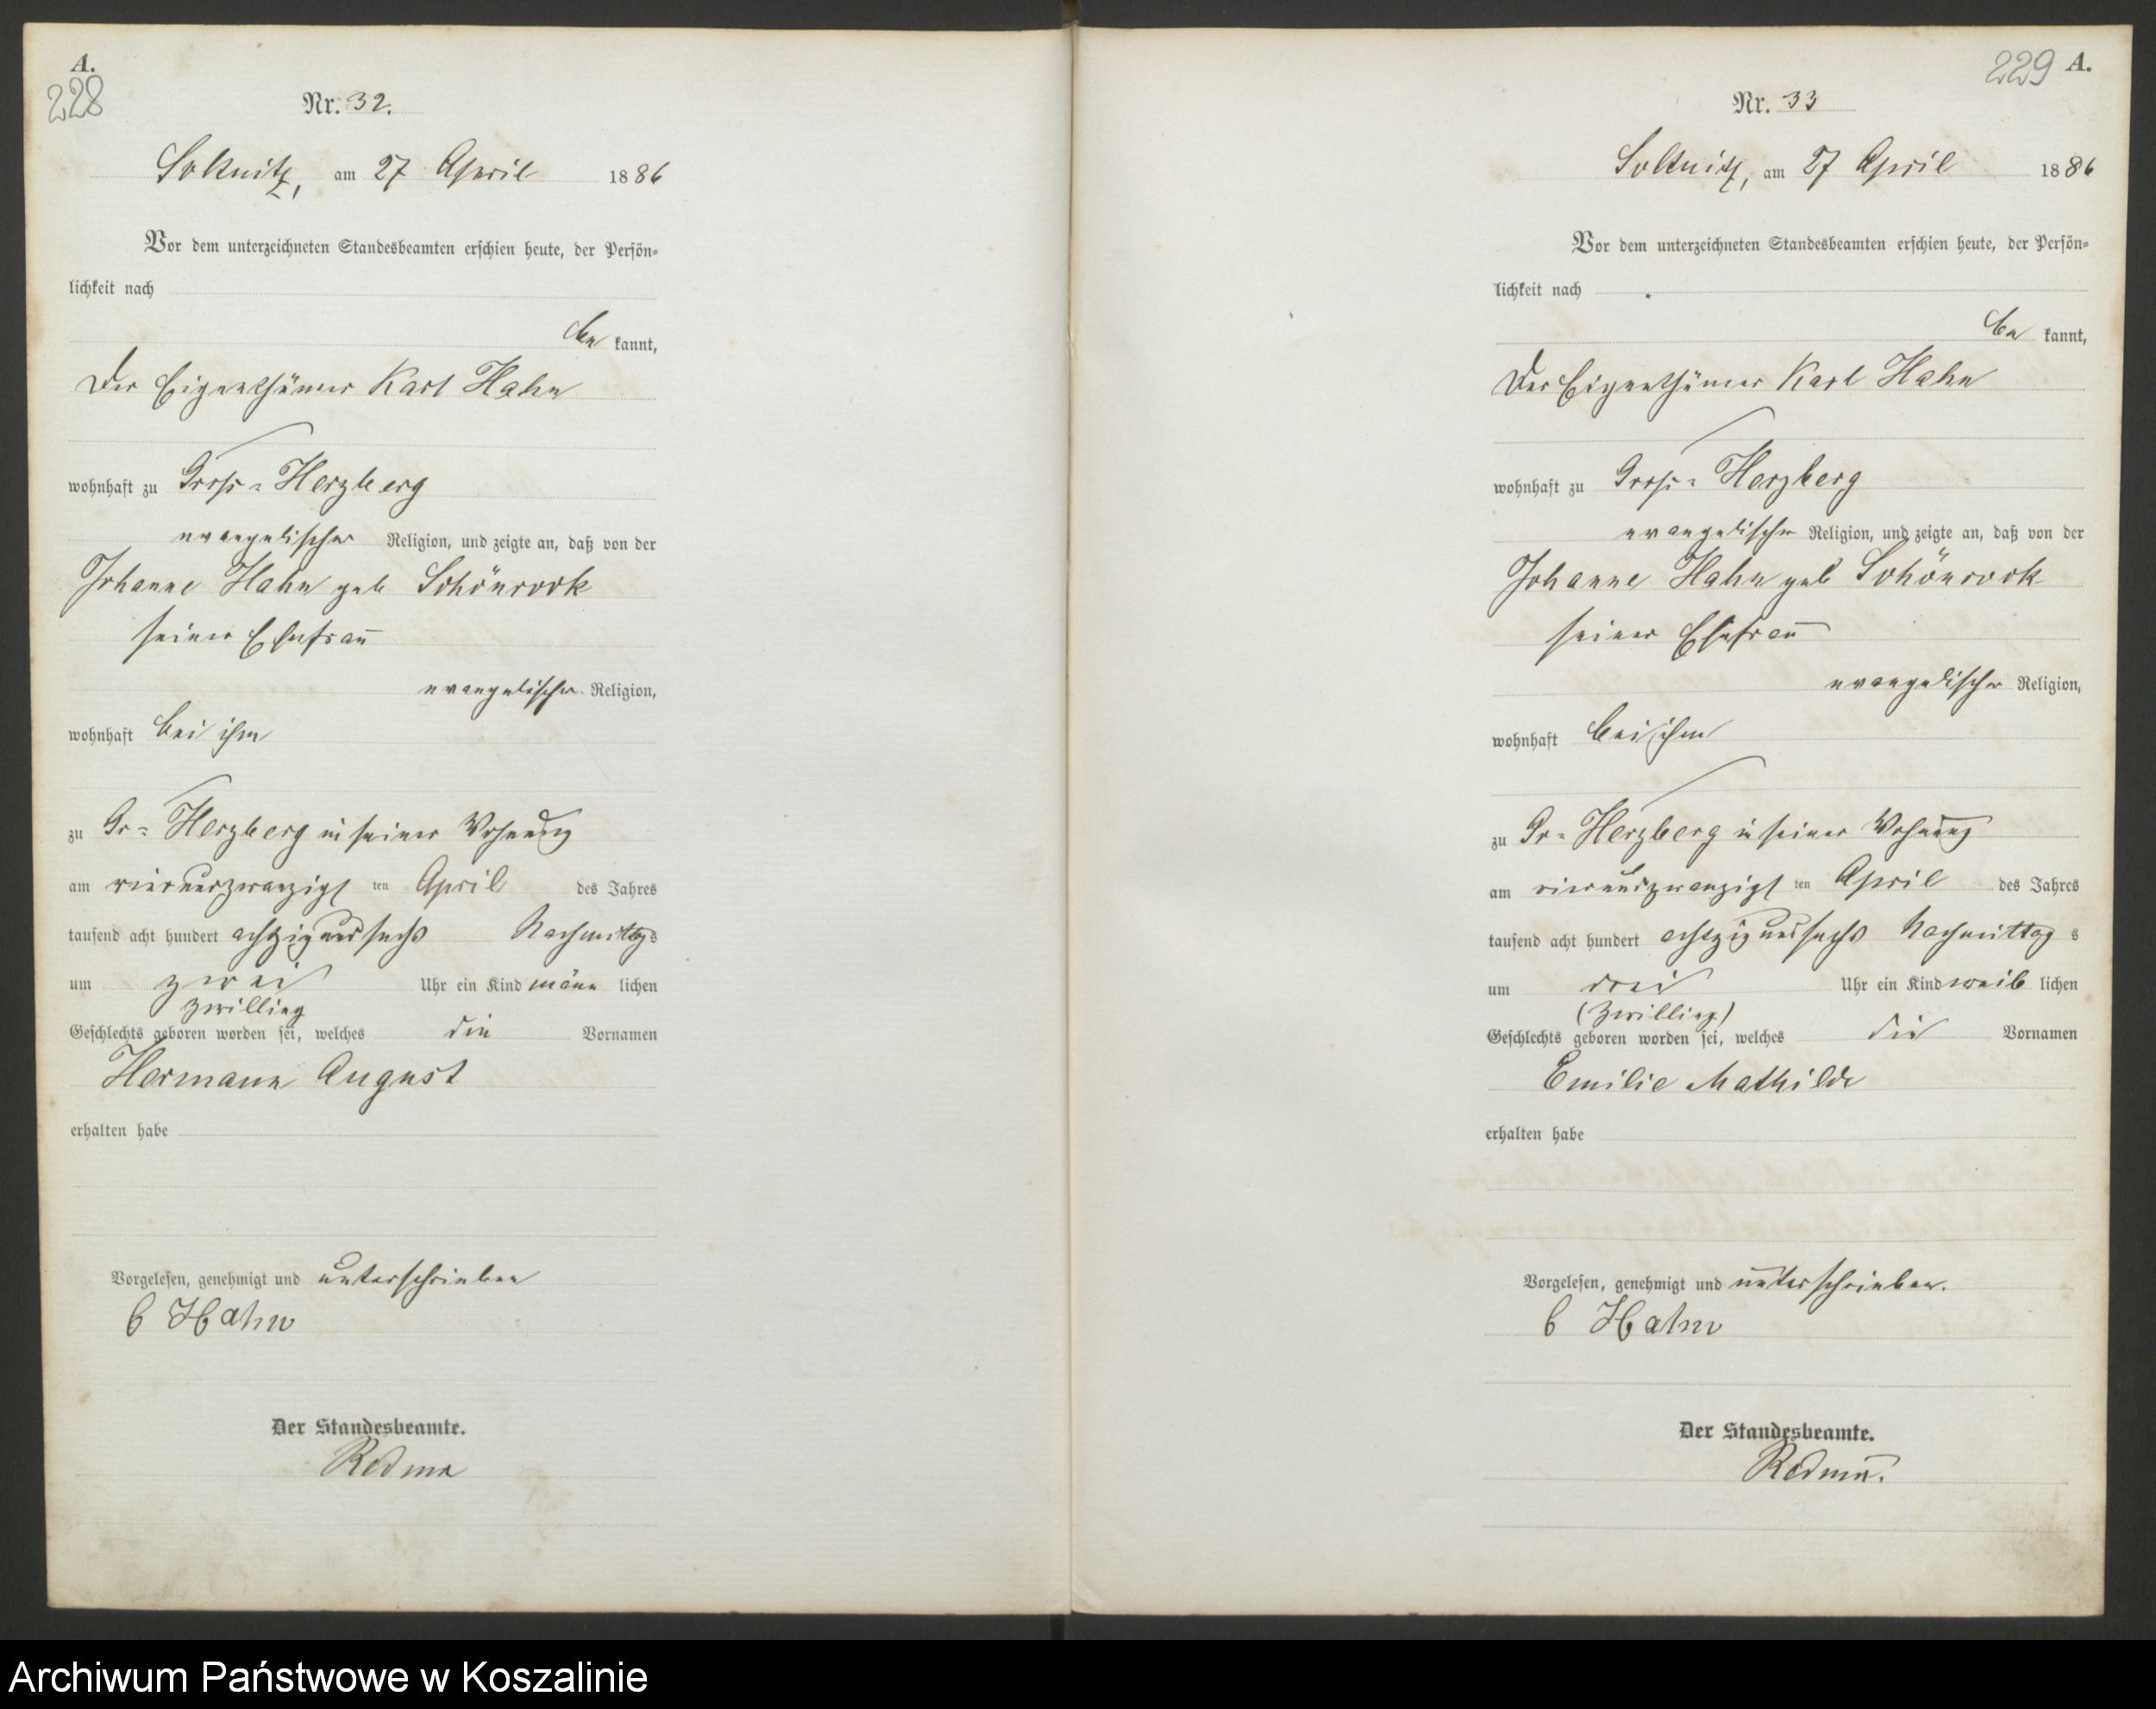 A.
228
Nr. 32.
Soltnitz, am 27 April 1886
Vor dem unterzeichneten Standesbeamten erschien heute, der Persön-
lichkeit nach
be kannt,
Der Eigenthümer Karl Hahn
wohnhaft zu Gross-Herzberg
evangelischer Religion, und zeigte an, daß von der
Johanne Hahn geb Schönrock
seiner Ehefrau
evangelischer Religion,
wohnhaft bei ihm
zu Gr-Herzberg in seiner Wohnung
am vierundzwanzigst ten April des Jahres
tausend acht hundert achtzigundsechs Nachmittags
um zwei Uhr ein Kind männ lichen
Zwilling
Geschlechts geboren worden sei, welches die Vornamen
Hermann August
erhalten habe
Vorgelesen, genehmigt und unterschrieben
C Hahn
Der Standesbeamte.
229 A.
Nr. 33
Soltnitz, am 27 April 1886
Vor dem unterzeichneten Standesbeamten erschien heute, der Persön-
lichkeit nach
be kannt,
Der Eigenthümer Karl Hahn
wohnhaft zu Gross-Herzberg
evangelischer Religion, und zeigte an, daß von der
Johanne Hahn geb Schönrock
seiner Ehefrau
evangelischer Religion,
wohnhaft bei ihm
zu Gr-Herzberg in seiner Wohnung
am vierundzwanzigst ten April des Jahres
tausend acht hundert achtzigundsechs Nachmittag s
um drei Uhr ein Kind weib lichen
(Zwilling)
Geschlechts geboren worden sei, welches die Vornamen
Emilie Mathilde
erhalten habe
Vorgelesen, genehmigt und unterschrieben.
C Hahn
Der Standesbeamte.
Archiwum Państwowe w Koszalinie